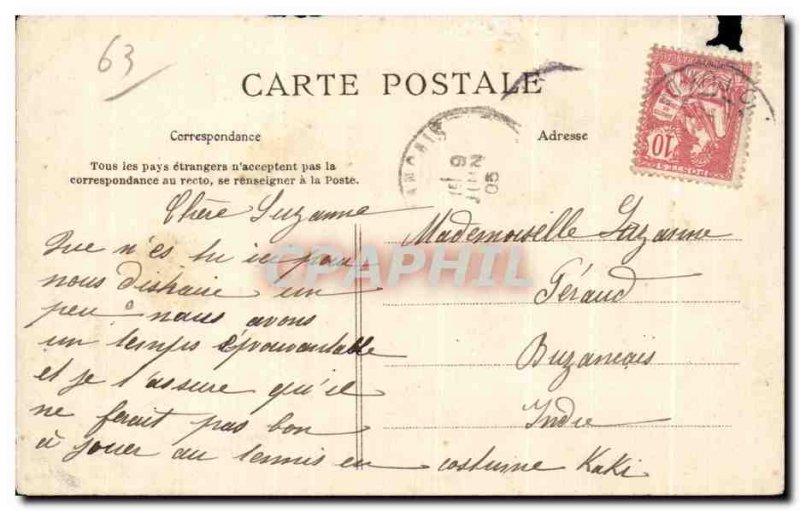 63
CARTE POSTALE
Correspondance
Adresse
Tous les pays étrangers n'acceptent pas la
correspondance au recto, se renseigner à la Poste.
9
JUIN
05
10
POSTES
Chère Suzanne
Que n'es tu ici pour
nous distraire un
peu nous avons
un temps épouvantable
et je t'assure qu'il
ne ferait pas bon
à jouer au tennis en costume Kaki
Mademoiselle Suzanne
Féraud
Buzançais
Indre
CPAPHIL